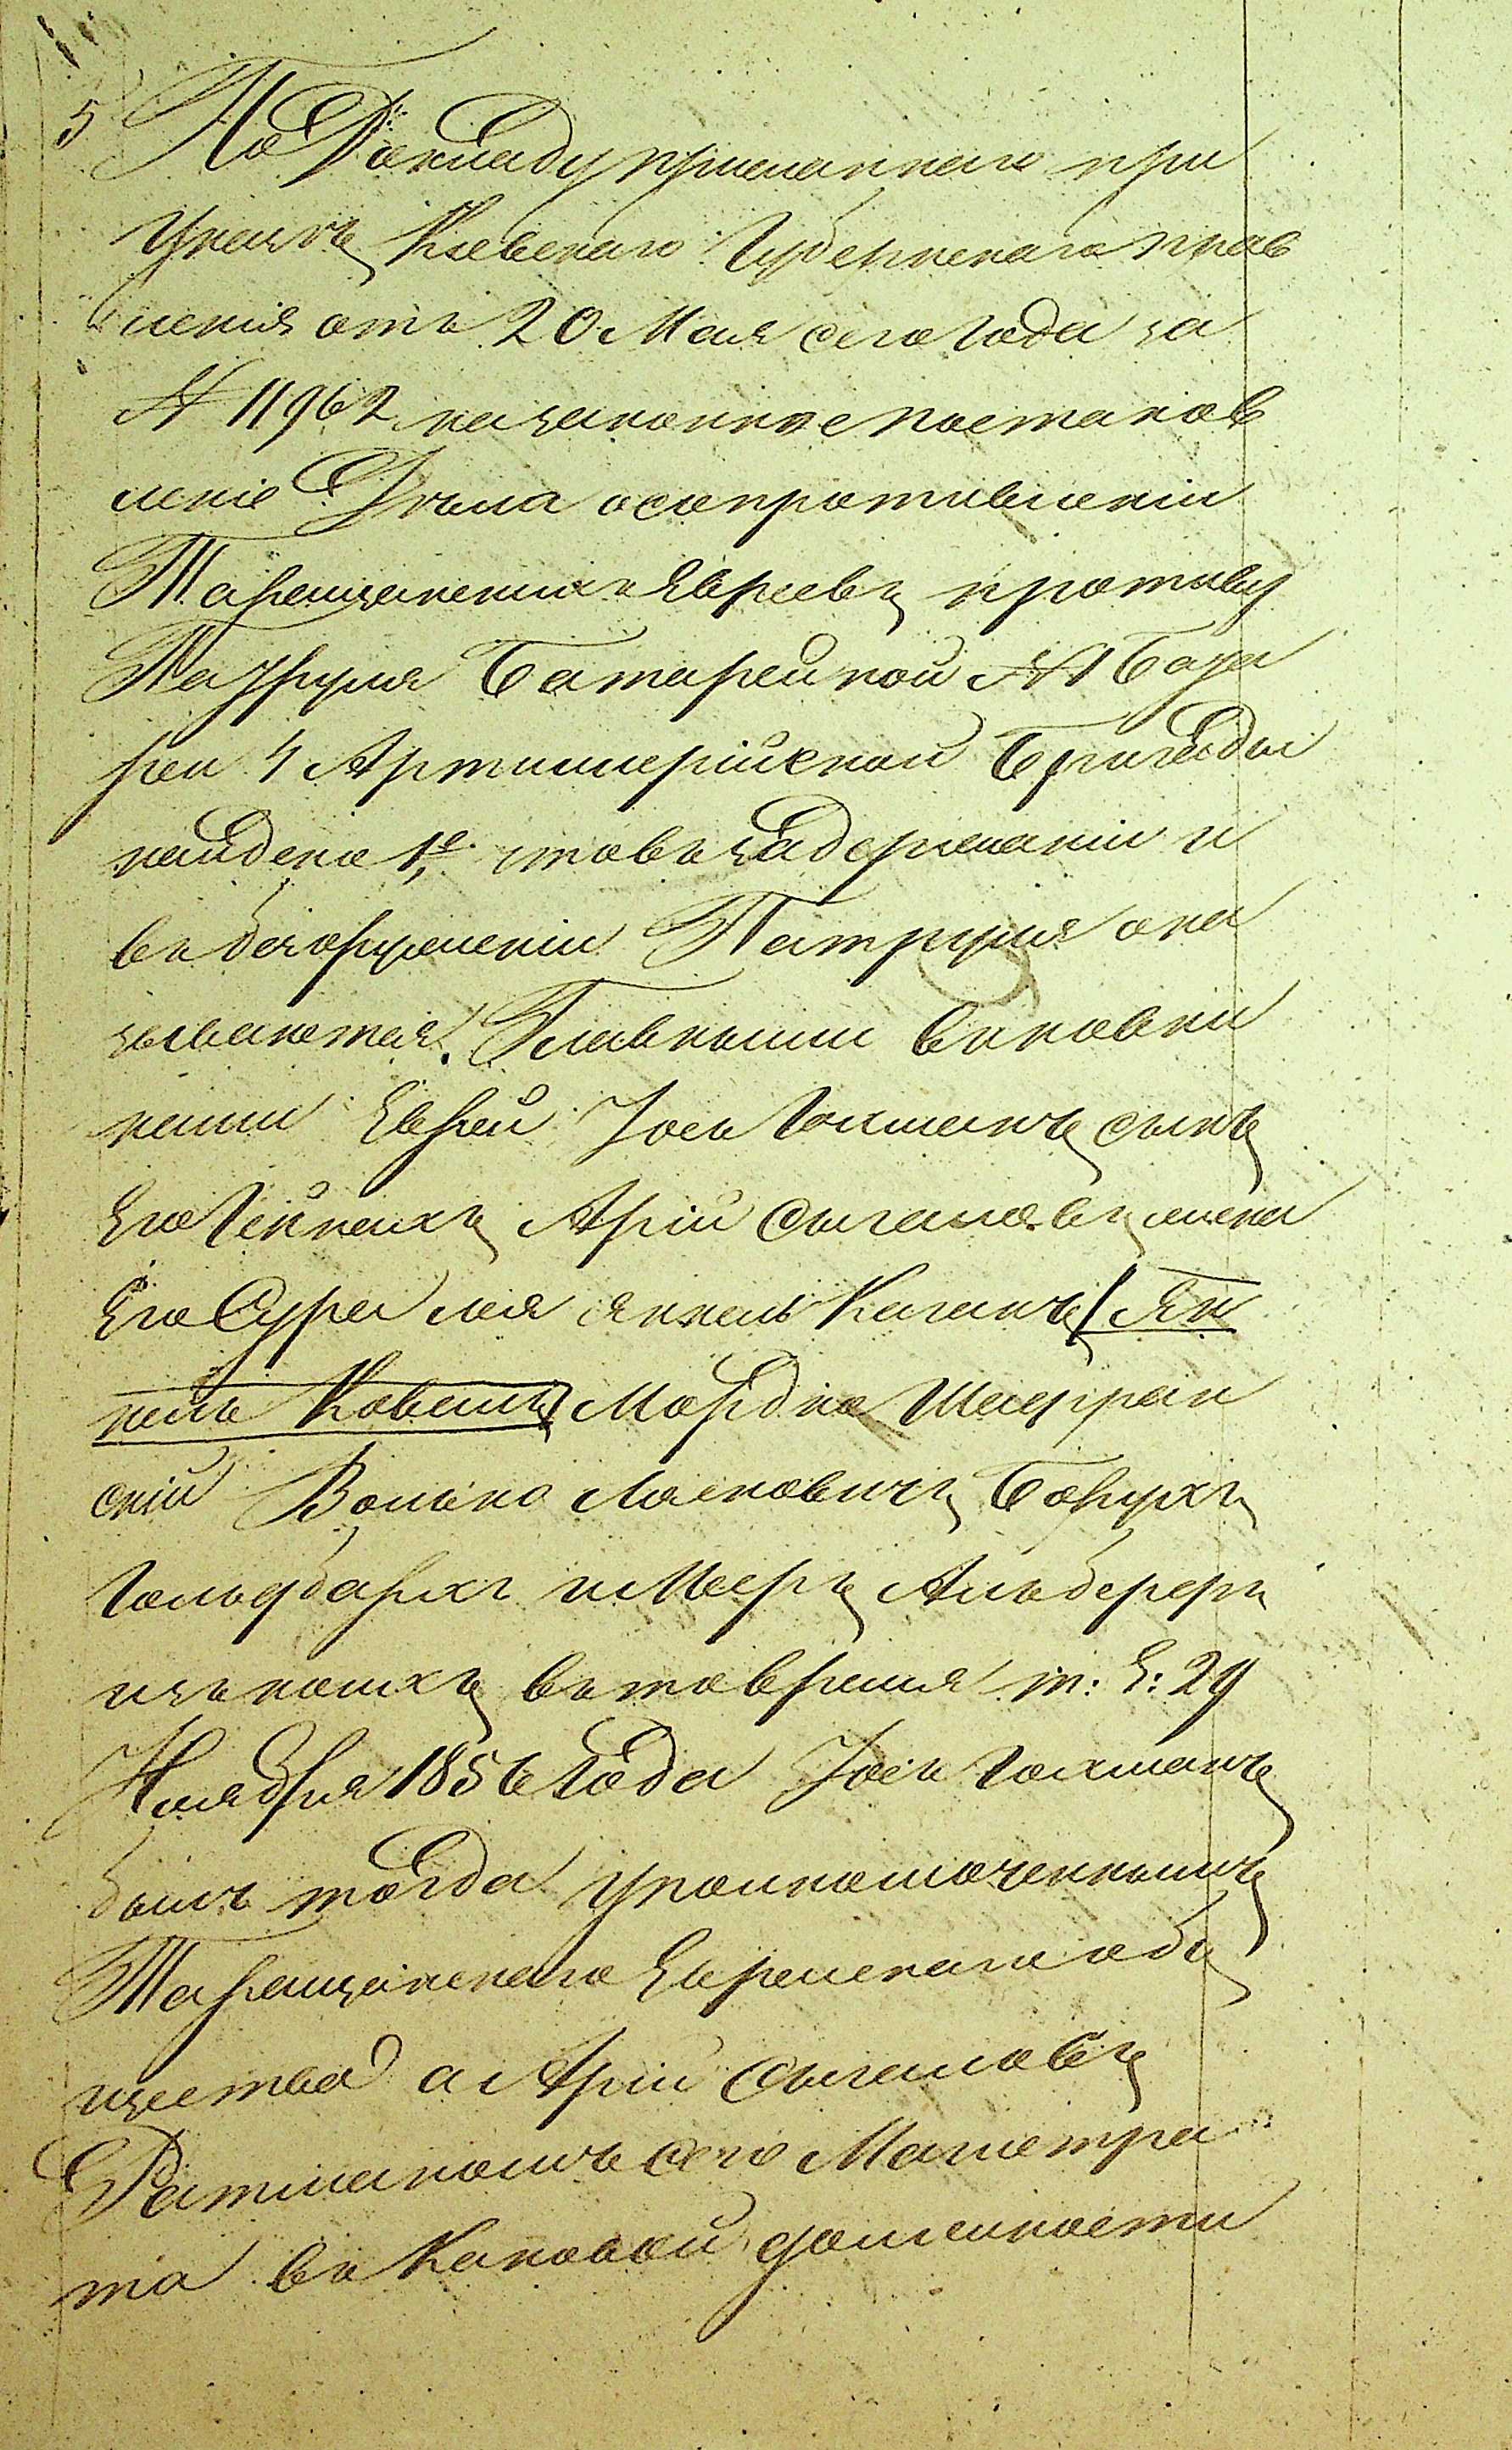 5 По Докладу присланнаго при
Указѣ Кіевскаго Губернскаго прав
ленія отъ 20 Мая сего года за
№ 11962 на законное постанов
леніе Дѣла осопротивленіи
Таращанскихъ Евреевъ противу
Патруля Батарейной № 1 Бата
реи 4 Артиллерійской Бригады
найдено 1е, чтовъ задержаніи и
въ обезоруженіи Патруля ока
зываются: Главными виновни
ками Еврей Іось Гохманъ сынъ
Его Гейнахъ Арій Сигаловъ жена
Его Сура Лея Янкель Каганъ (Ян
кель Коваль) Мордко Шаерман
скій Волько Масковичъ Борухъ
Гольдбархъ и Мееръ Альбереръ
изъ коихъ въ то время т: Е: 29
Ноября 1856 года Іось Гохманъ
былъ тогда уполномоченнымъ
Таращанскаго Еврейскаго об
щества а Арій Сигаловъ
Ратманомъ сего Магистра
та въ каковой должности